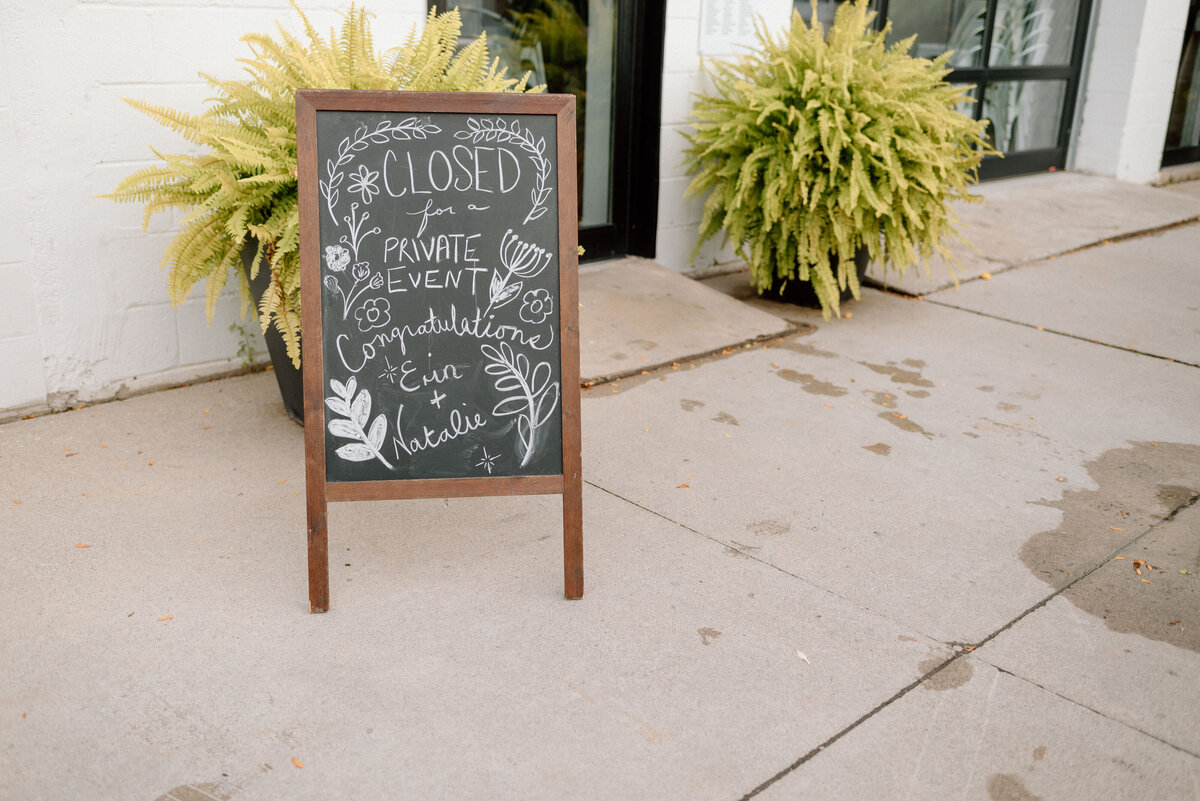 CLOSED
for a
PRIVATE
EVENT
Congratulations
Erin
+
Natalie